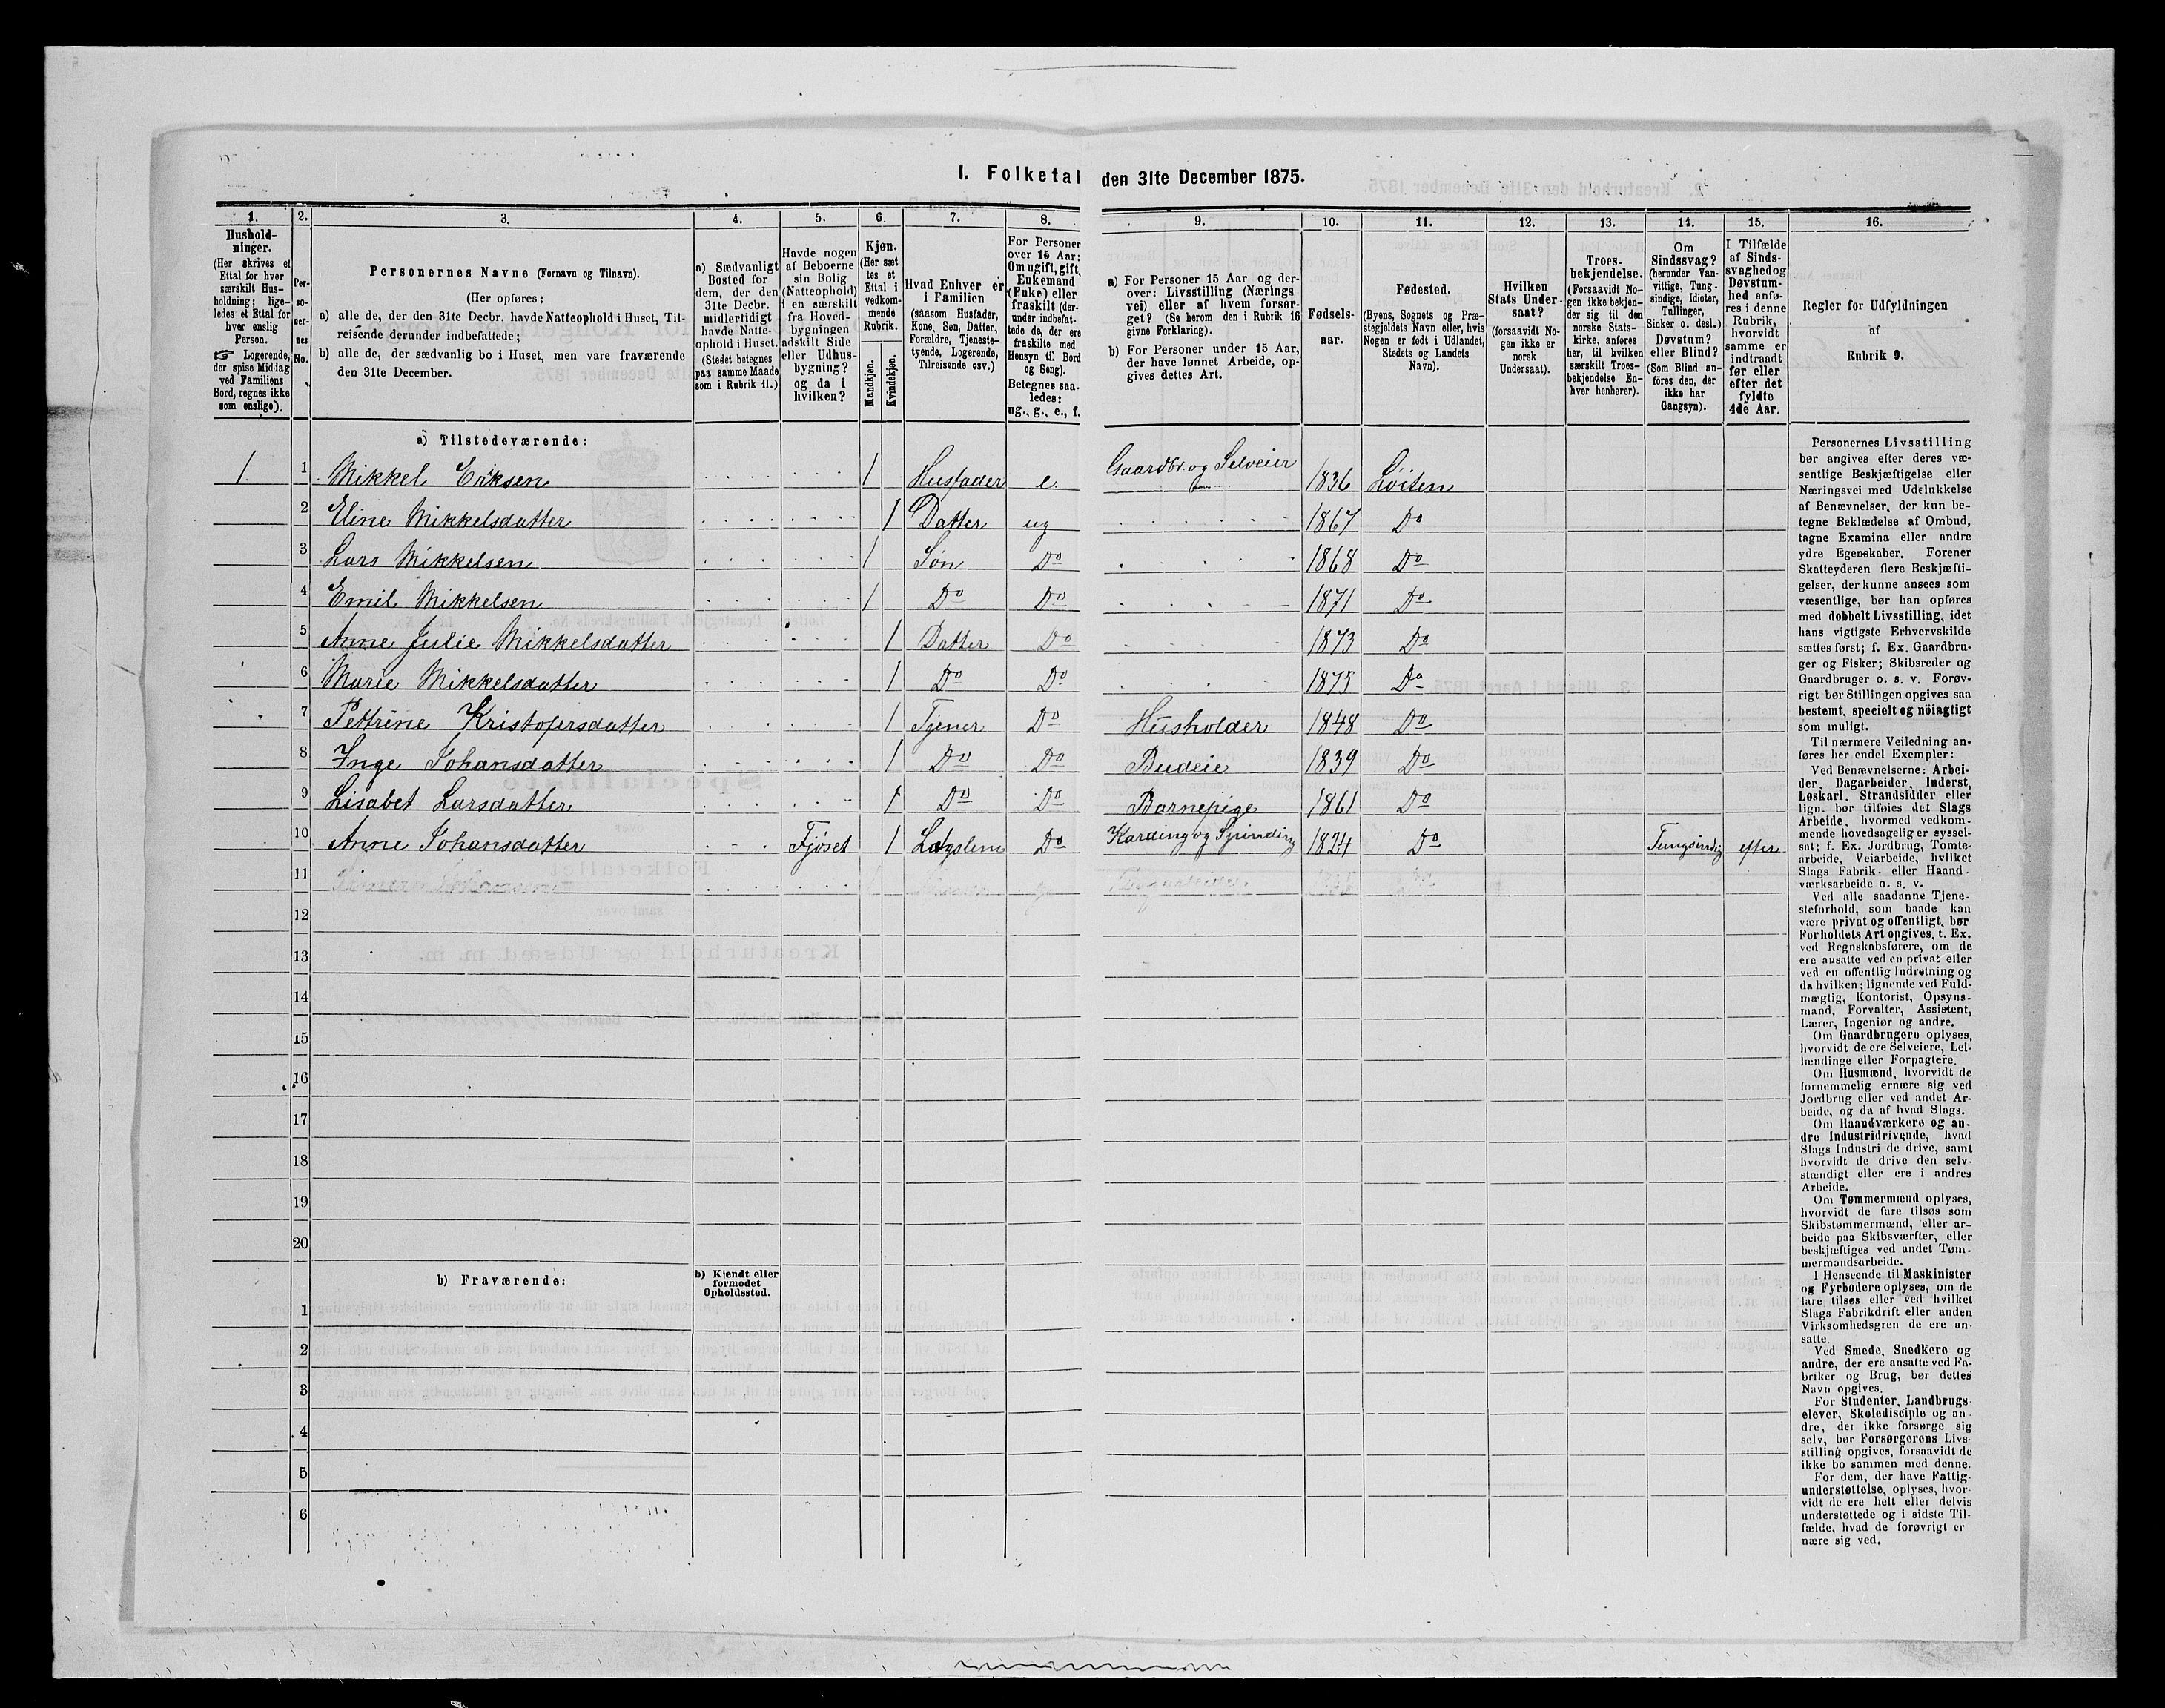 I. Folketal den 31te December 1875.
1. 2. 3. 4. 5. 6. 7. 8. 9. 10. 11. 12. 13. 14. 15. 16.
Hushold-
ninger.
(Her skrives et
Ettal for hver
særskilt Hus-
holdning; lige-
ledes et Ettal for
hver enslig
Person.
☞ Logerende,
der spise Middag
ved Familiens
Bord, regnes ikke
som enslige).
Per-
so-
ner-
nes
No.
Personernes Navne (Fornavn og Tilnavn).
(Her opføres:
a) alle de, der den 31te Decbr. havde Natteophold i Huset, Til-
reisende derunder indbefattede;
b) alle de, der sædvanlig bo i Huset, men vare fraværende
den 31te December.
a) Sædvanligt
Bosted for
dem, der den
31te Decbr.
midlertidigt
havde Natte-
ophold i Huset.
(Stedet betegnes
paa samme Maade
som i Rubrik 11.)
Havde nogen
af Beboerne
sin Bolig
(Natteophold)
i en særskilt
fra Hoved-
bygningen
adskilt Side
eller Udhus-
bygning?
og da i
hvilken?
Kjøn.
(Her sæt
tes et
Ettal i
vedkom-
mende
Rubrik.
Mandkjøn.
Kvindekjøn.
Hvad Enhver er
i Familien
(saasom Husfader,
Kone, Søn, Datter,
Forældre, Tjeneste-
tyende, Logerende,
Tilreisende osv.)
For Personer
over 15 Aar:
Om ugift, gift,
Enkemand
(Enke) eller
fraskilt (der-
under indbefat-
tede de, der ere
fraskilte med
Hensyn til Bord
og Seng).
Betegnes saa-
ledes:
ug., g., e., f.
a) For Personer 15 Aar og der-
over: Livsstilling (Nærings
vei) eller af hvem forsør-
get? (Se herom den i Rubrik 16
givne Forklaring).
b) For Personer under 15 Aar,
der have lønnet Arbeide, op-
gives dettes Art.
Fødsels-
aar.
Fødested.
(Byens, Sognets og Præ-
stegjeldets Navn eller, hvis
Nogen er født i Udlandet,
Stedets og Landets
Navn).
Hvilken
Stats Under-
saat?
(forsaavidt No-
gen ikke er
norsk
Undersaat).
Troes-
bekjendelse.
(Forsaavidt No-
gen ikke bekjen-
der sig til den
norske Stats-
kirke, anføres
her, til hvilken
særskilt Troes-
bekjendelse En-
hver henhører).
Om
Sindssvag?
(herunder Van-
vittige, Tung-
sindige, Idioter,
Tullinger,
Sinker o. desl.)
Døvstum?
eller Blind?
(Som Blind an-
föres den, der
ikke har
Gangsyn).
I Tilfælde
af Sinds-
svaghed og
Døvstum-
hed anfø-
res i denne
Rubrik,
hvorvidt
samme er
indtraadt
før eller
efter det
fyldte
4de Aar.
Regler for Udfyldningen
af
Rubrik 9.
a) Tilstedeværende:
1. 1 Mikkel Eriksen 1 Husfader e. Gaardbr. og Selveier 1836 Löiten
2 Eline Mikkelsdatter 1 Datter ug 1867 Do
3 Lars Mikkelsen 1 Søn Do 1868 Do
4 Emil Mikkelsen 1 Do Do 1871 Do
5 Anne Julie Mikkelsdatter 1 Datter Do 1873 Do
6 Marie Mikkelsdatter 1 Do Do 1875 Do
7 Pettrine Kristofersdatter 1 Tjener Do Husholder 1848 Do
8 Inge Johansdatter 1 Do Do Budeie 1839 Do
9 Lisabet Larsdatter 1 Do Do Barnepige 1861 Do
10 Anne Johansdatter Fjöset 1 Do Karding og Spinding 1824 Do Tungsindig efter
11
12
13
14
15
16
17
18
19
20
b) Fraværende:
b) Kjendt eller
formodet
Opholdssted.
1
2
3
4
5
6
Personernes Livsstilling
bør angives efter deres væ-
sentlige Beskjæftigelse eller
Næringsvei med Udelukkelse
af Benævnelser, der kun be-
tegne Beklædelse af Ombud,
tagne Examina eller andre
ydre Egenskaber. Forener
Skatteyderen flere Beskjæfti-
gelser, der kunne ansees som
væsentlige, bør han opføres
med dobbelt Livsstilling, idet
hans vigtigste Erhvervskilde
sættes først; f. Ex. Gaardbru-
ger og Fisker; Skibsreder og
Gaardbruger o. s. v. Forøv-
rigt bør Stillingen opgives saa
bestemt, specielt og nöiagtigt
som muligt.
Til nærmere Veiledning an-
føres her endel Exempler:
Ved Benævnelserne: Arbei-
der, Dagarbeider, Inderst,
Løskarl, Strandsidder eller
lign. bør tilføies det Slags
Arbeide, hvormed vedkom-
mende hovedsagelig er syssel-
sat; f. Ex. Jordbrug, Tomte-
arbeide, Veiarbeide, hvilket
Slags Fabrik- eller Haand-
værksarbeide o. s. v.
Ved alle saadanne Tjene-
steforhold, som baade kan
være privat og offentligt, bør
Forholdets Art opgives, t. Ex.
ved Regnskabsførere, om de
ere ansatte ved en privat eller
ved en offentlig Indretning og
da hvilken; lignende ved Fuld-
mægtig, Kontorist, Opsyns-
mand, Forvalter, Assistent,
Lærer, Ingeniør og andre.
Om Gaardbrugere oplyses,
hvorvidt de ere Selveiere, Lei-
lændinge eller Forpagtere.
Om Husmænd, hvorvidt de
fornemmelig ernære sig ved
Jordbrug eller ved andet Ar-
beide, og da af hvad Slags.
Om Haandværkere og an-
dre Industridrivende, hvad
Slags Industri de drive, samt
hvorvidt de drive den selv-
stændigt eller ere i andres
Arbeide.
Om Tømmermænd oplyses,
hvorvidt de fare tilsøs som
Skibstømmermænd, eller ar-
beide paa Skibsværfter, eller
beskjæftiges ved andet Tøm-
mermandsarbeide.
I Henseende til Maskinister
og Fyrbødere oplyses, om de
fare tilsøs eller ved hvilket
Slags Fabrikdrift eller anden
Virksomhedsgren de ere an-
satte.
Ved Smede, Snedkere og
andre, der ere ansatte ved Fa-
briker og Brug, bør dettes
Navn opgives.
For Studenter, Landbrugs-
elever, Skoledisciple og an-
dre, der ikke forsørge sig
selv, bør Forsørgerens Livs-
stilling opgives, forsaavidt de
ikke bo sammen med denne.
For dem, der have Fattig-
understøttelse, oplyses, hvor-
vidt de ere helt eller delvis
understøttede og i sidste Til-
fælde, hvad de forøvrigt er
nære sig ved.